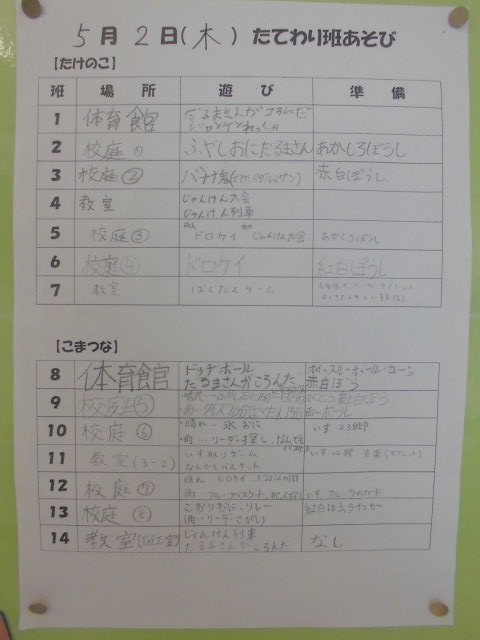 5月2日(木) たてわり班あそび
【たけのこ】
班 場所 遊び 準備
1 体育館 だるまさんがころんだ
ジャンケンれっしゃ
2 校庭① ふやしおに だるまさん あかしろぼうし
3 校庭② バナナ鬼 赤白ぼうし
4 教室 じゃんけん大会
じゃんけん列車
5 校庭③ ドロケイ じゃんけん大会 あかしろぼうし
6 校庭④ ドロケイ 紅白ぼうし
7 教室 ばくだんゲーム
【こまつな】
8 体育館 ドッチボール ホイッスル・ボール・コーン
だるまさんがころんだ 赤白ぼう
9 校庭⑤ 紅白ぼう
10 校庭⑥ ・晴れ…氷おに いす23脚
・雨…リーダー探し、なんでも
11 教室(3-2) いす取りゲーム いす22脚 音楽(タブレット)
なんでもバスケット
12 校庭⑦ 晴れ ドロケイ、だるまさんの1日
雨 フルーツバスケット、 いす フルーツのカード
13 校庭⑧ こおりおに、リレー 紅白ぼう、ラインカー
(雨)リーダーさがし
14 教室(図工室) じゃんけん列車 なし
だるまさんがころんだ